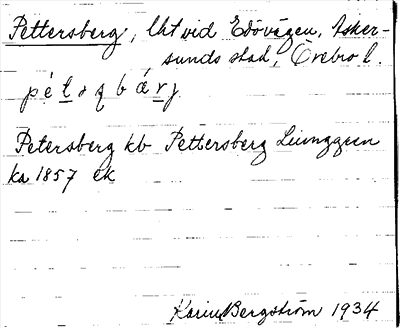 Pettersberg, lht vid Edövägen, Asker-
sunds stad, Örebro l.
Petersberg kb Pettersberg Ljunggren
ka 1857 ek
Karin Bergström 1934